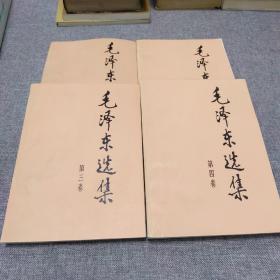 毛泽东
毛泽东
毛泽东选集
第三卷
毛泽东选集
第四卷